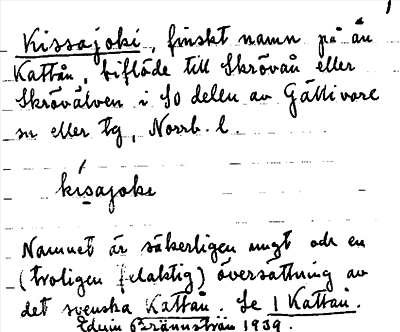 Kissajoki, finskt namn på ån
Kattån, biflöde till Skrövån eller
Skrövälven i SO delen av Gällivare
sn eller tg, Norrb. l.
kisajoki
Namnet är säkerligen ungt och en
(troligen felaktig) översättning av
det svenska Kattån. Se 1 Kattån.
Edvin Brännström 1939.